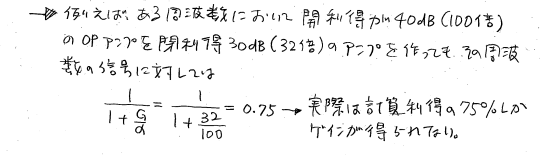 → 例えば、ある周波数において開利得が40dB(100倍)
のOPアンプを閉利得30dB(32倍)のアンプを作っても、その周波
数の信号に対しては
1/(1+G/α) = 1/(1+32/100) = 0.75 → 実際は計算利得の75%しか
ゲインが得られない。